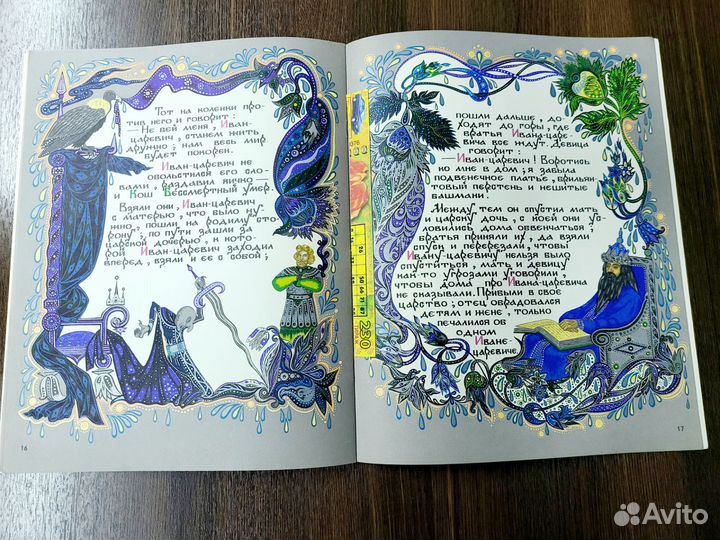 Тот на коленки про-
тив него и говорит:
— Не бей меня, Иван-
царевич, станем жить
дружно; нам весь мир
будет покорен.
Иван-царевич не
обольстился его сло-
вами, раздавил яичко —
и Кош Бессмертный умер.
Взяли они, Иван-царевич
с матерью, что было ну-
жно, пошли на родиму сто-
рону; по пути зашли за
царской дочерью, к кото-
рой Иван-царевич заходил
вперед, взяли и ее с собой;
16
пошли дальше, до-
ходят до горы, где
братья Ивана-царе-
вича все ждут. Девица
говорит:
— Иван-царевич! Воротись
ко мне в дом; я забыла
подвенечное платье, брильян-
товый перстень и нешитые
башмаки.
Между тем он спустил мать
и царску дочь, с коей они ус-
ловились дома обвенчаться;
братья приняли их, да взяли
спуск и перерезали, чтобы
Ивану-царевичу нельзя было
спуститься, мать и девицу
как-то угрозами уговорили,
чтобы дома про Ивана-царевича
не сказывали. Прибыли в свое
царство; отец обрадовался
детям и жене, только
печалился об
одном
Иване-
царевиче.
17
230
Avito